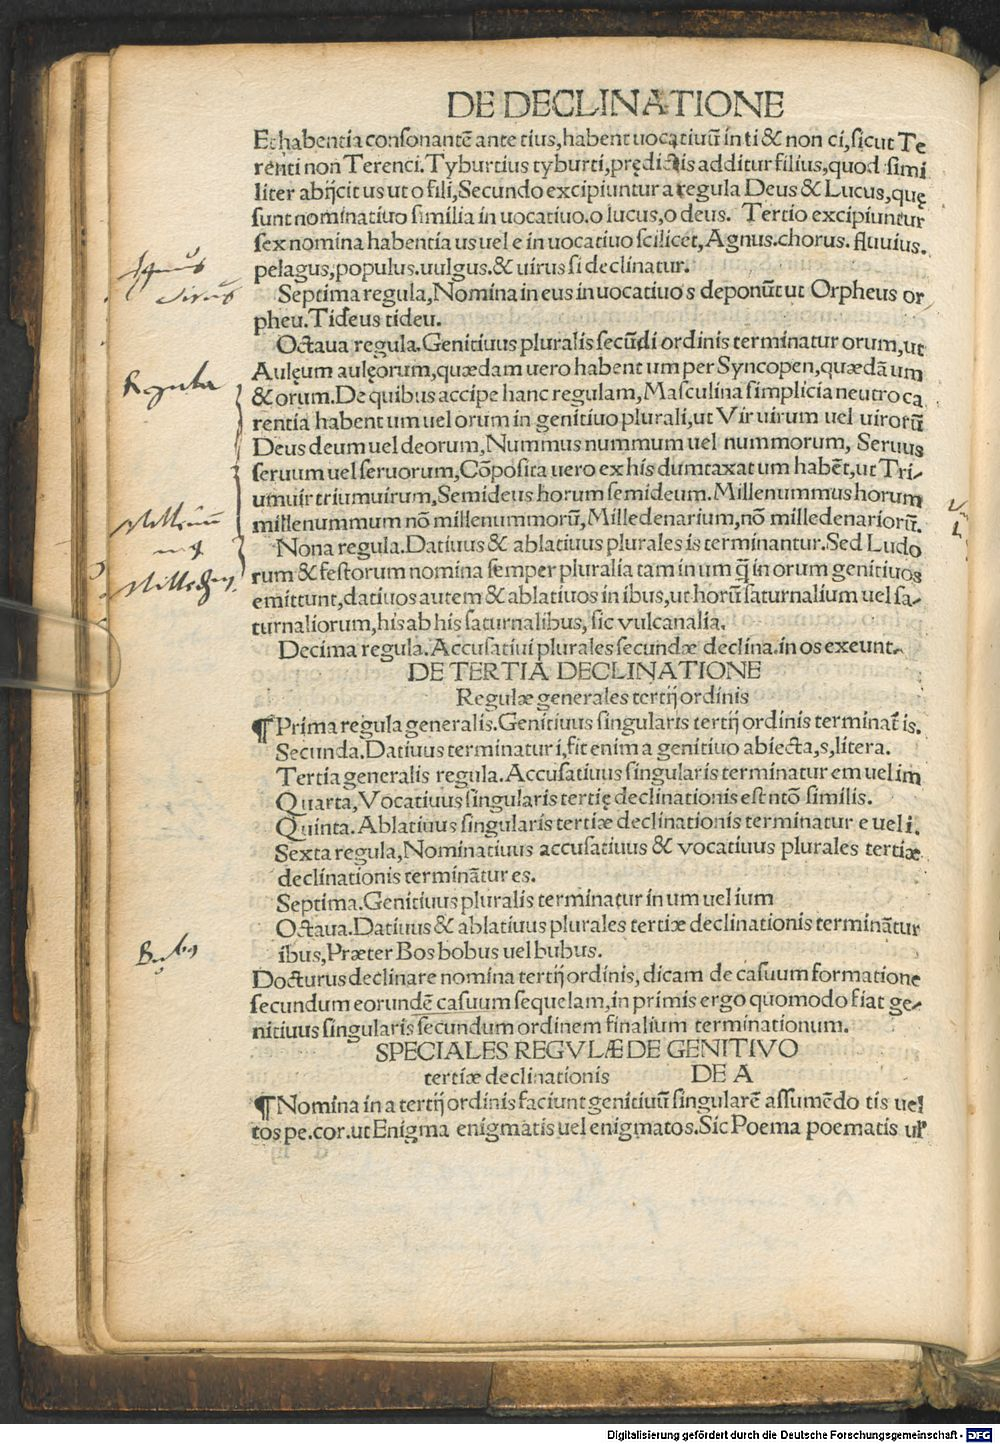 DE DECLINATIONE
Et habentia consonantē ante tius, habent uocatiuū in ti & non ci, sicut Te
renti non Terenci. Tyburtius tyburti, prędictis additur filius, quod simi
liter abijcit us ut o fili, Secundo excipiuntur a regula Deus & Lucus, quę
sunt nominatiuo similia in uocatiuo. o lucus, o deus. Tertio excipiuntur
sex nomina habentia us uel e in uocatiuo scilicet, Agnus. chorus. fluuius.
pelagus, populus. uulgus. & uirus si declinatur.
Septima regula, Nomina in eus in uocatiuo s deponūt ut Orpheus or
pheu. Tideus tideu.
Octaua regula. Genitiuus pluralis secūdi ordinis terminatur orum, ut
Aulęum aulęorum, quædam uero habent um per Syncopen, quædā um
& orum. De quibus accipe hanc regulam, Masculina simplicia neutro ca
rentia habent um uel orum in genitiuo plurali, ut Vir uirum uel uirorū
Deus deum uel deorum, Nummus nummum uel nummorum, Seruus
seruum uel seruorum, Cōposita uero ex his dumtaxat um habēt, ut Tri-
umuir triumuirum, Semideus horum semideum. Millenummus horum
millenummum nō millenummorū, Milledenarium, nō milledenariorū.
Nona regula. Datiuus & ablatiuus plurales is terminantur. Sed Ludo
rum & festorum nomina semper pluralia tam in um q̄ in orum genitiuos
emittunt, datiuos autem & ablatiuos in ibus, ut horū saturnalium uel sa-
turnaliorum, his ab his saturnalibus, sic vulcanalia.
Decima regula. Accusatiui plurales secundæ declina. in os exeunt.
DE TERTIA DECLINATIONE
Regulæ generales tertij ordinis
¶ Prima regula generalis. Genitiuus singularis tertij ordinis terminat̄ is.
Secunda. Datiuus terminatur i, fit enim a genitiuo abiecta, s, litera.
Tertia generalis regula. Accusatiuus singularis terminatur em uel im
Quarta, Vocatiuus singularis tertię declinationis est ntō similis.
Quinta. Ablatiuus singularis tertiæ declinationis terminatur e uel i.
Sexta regula, Nominatiuus accusatiuus & vocatiuus plurales tertiæ
declinationis terminātur es.
Septima. Genitiuus pluralis terminatur in um uel ium
Octaua. Datiuus & ablatiuus plurales tertiæ declinationis terminātur
ibus, Præter Bos bobus uel bubus.
Docturus declinare nomina tertij ordinis, dicam de casuum formatione
secundum eorundē casuum sequelam, in primis ergo quomodo fiat ge-
nitiuus singularis secundum ordinem finalium terminationum.
SPECIALES REGVLÆ DE GENITIVO
tertiæ declinationis DE A
¶ Nomina in a tertij ordinis faciunt genitiuū singularē assumēdo tis uel
tos pe. cor. ut Enigma enigmatis uel enigmatos. Sic Poema poematis ul'
Virus
Regula
Digitalisierung gefördert durch die Deutsche Forschungsgemeinschaft - DFG